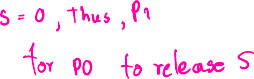 s = 0, Thus, P1
for P0 to release S